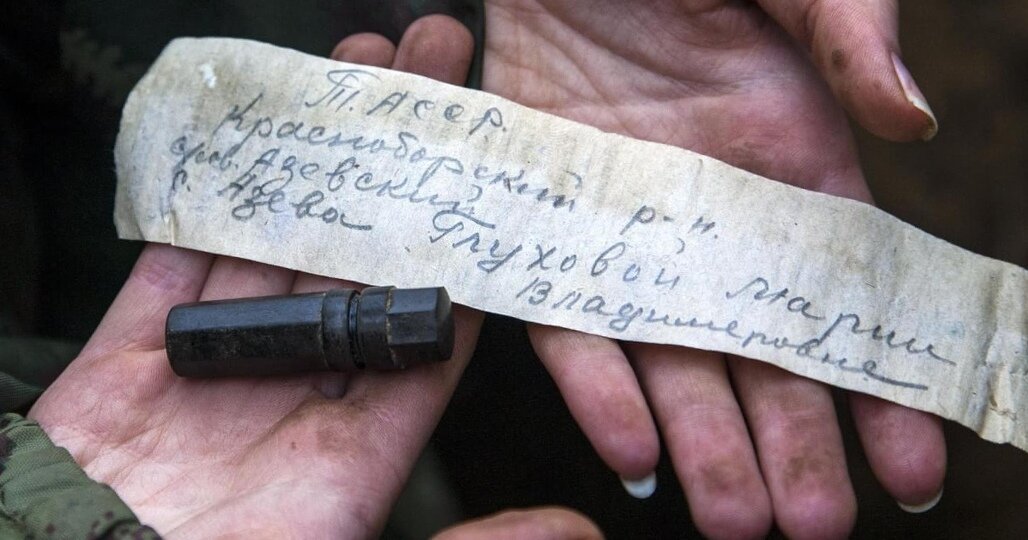 Т. АССР.
Красноборский р-н.
с. Азевский
с. Азева Глуховой Марии
Владимеровне